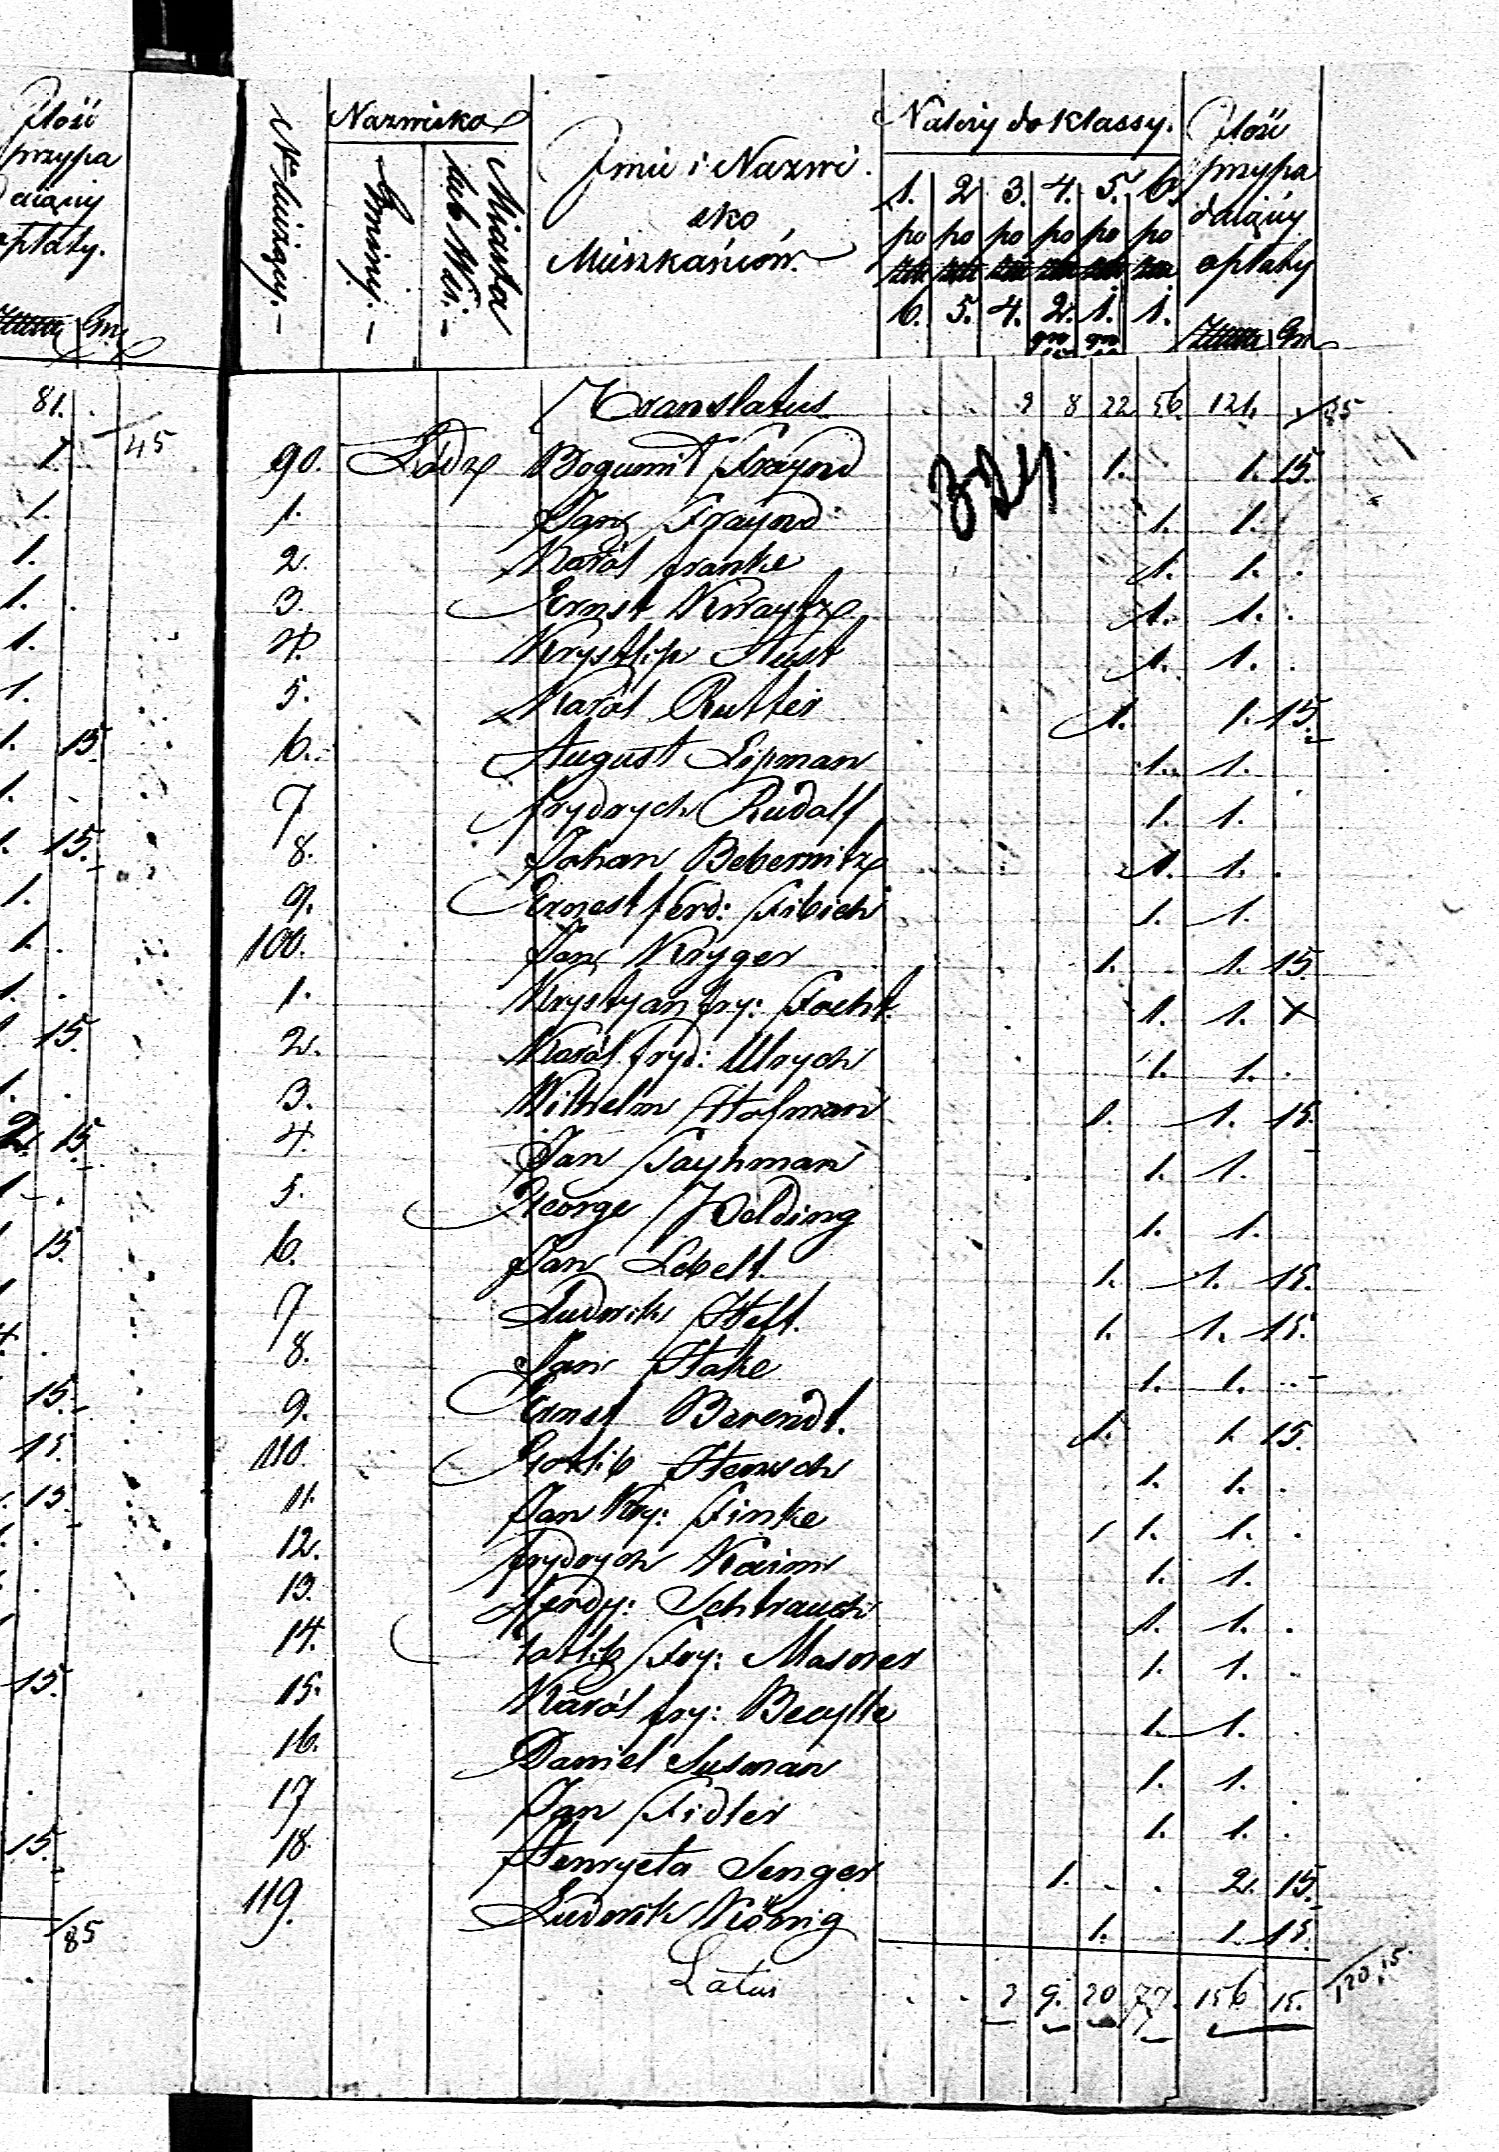 Ilość
przypa
dający
opłaty.
Gr.
81.
1. 45
1.
1.
1.
1.
1.
1. 15.
1.
1. 15.
1.
1.
1.
15.
1.
2. 15.
15.
15.
15.
15.
15.
15.
85
No bieżący.
Nazwisko
Gminy.
Miasta
lub Wsi.
Imie i Nazwi
sko
Mieszkańców.
Należy do Klassy.
1. 2 3. 4. 5. 6.
po po po po po po
6. 5. 4. 2. 1. 1.
gr gr
Ilość
przypa
dający
opłaty
Gr
Translatus 2 8 22 56. 121. 85
324
90. Łódź Bogumił Fraynd 1. 1. 15.
1. Jan Fraynd 1. 1.
2. Karól Franke 1. 1.
3. Ernst 1. 1.
4. 1. 1.
5. Karól Rutter 1. 1. 15.
6. August Lipman 1. 1.
7 Frydrych Rudolf 1. 1.
8. Johan Bebernitz 1. 1.
9. Ernest Ferd: Fibich 1. 1.
100. Jan Kryger 1. 1. 15.
1. Krystyan Fry: Focht. 1. 1.
2. Karól Fryd: Ulrych 1. 1.
3. Wilhelm Hofman 1. 1. 15.
4. Jan Tayhman 1. 1.
5. George 1. 1.
6. Jan Lebelt. 1. 1. 15.
7 Ludwik Heft. 1. 1. 15.
8. Jan Hake 1. 1.
9. Ernst Berendt. 1. 1. 15.
110. Gottlib Hensch 1. 1.
11. Jan Kry: Finke 1. 1.
12. Frydrych Kaim 1. 1.
13. Ferdy: Schtrauch 1. 1.
14. Gottlib Fry: 1. 1.
15. Karól Fry: 1. 1.
16. Daniel Susman 1. 1.
17 Jan Fidler 1. 1.
18. Henryeta Senger 1. 2. 15.
119. Ludwik König 1. 1. 15.
Latus 2 9. 20 77. 156 15. 120,15